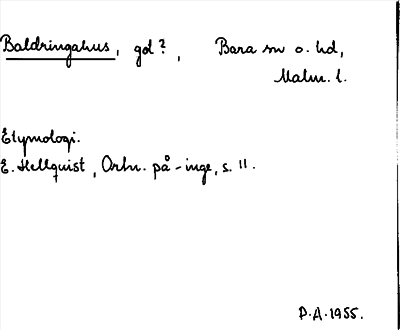 Baldringahus, gd ?, Bara sn o. hd,
Malm. l.
Etymologi.
E. Hellquist, Ortn. på -inge, s. 11.
P.A. 1955.